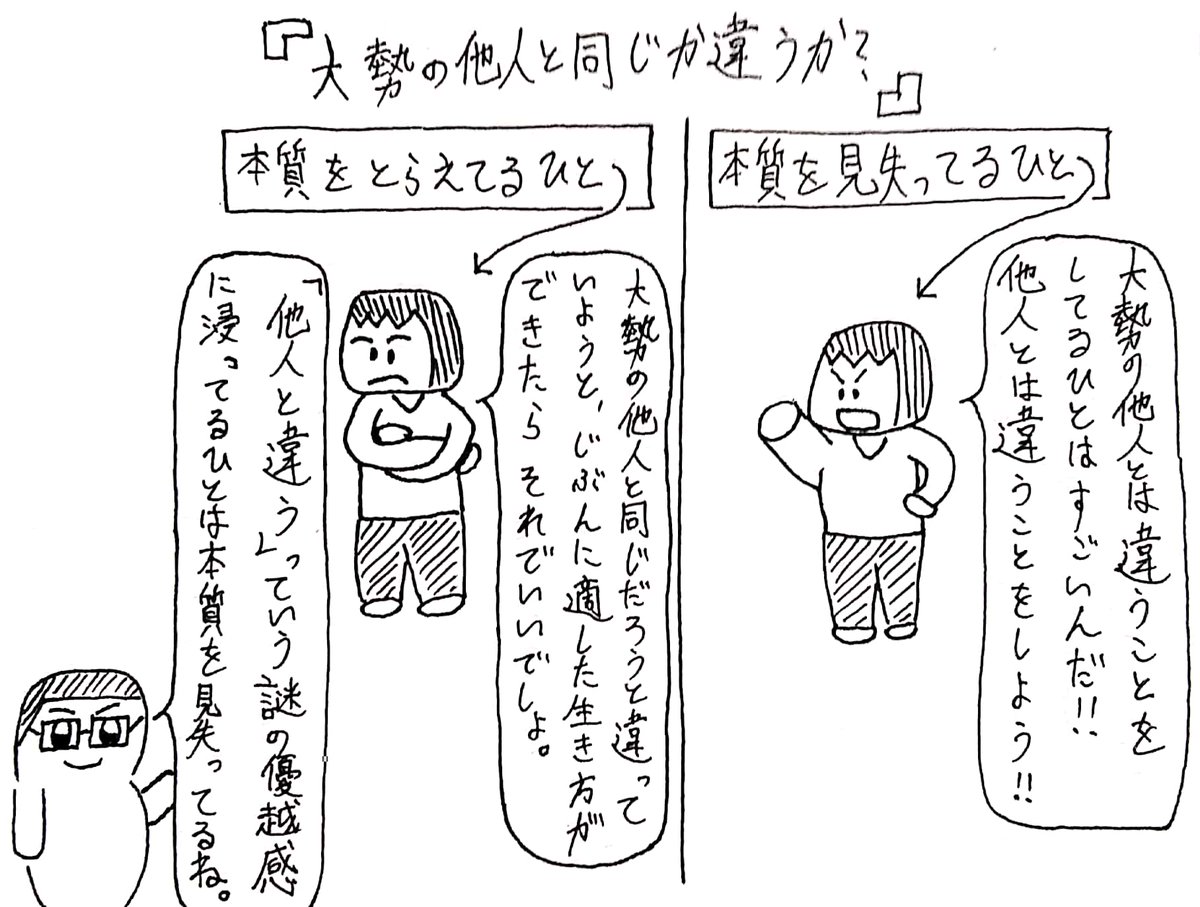 『大勢の他人と同じか違うか?』
本質を見失ってるひと
大勢の他人とは違うことを
してるひとはすごいんだ!!
他人とは違うことをしよう!!
本質をとらえてるひと
大勢の他人と同じだろうと違って
いようと、じぶんに適した生き方が
できたらそれでいいでしょ。
「他人と違う」っていう謎の優越感
に浸ってるひとは本質を見失ってるね。